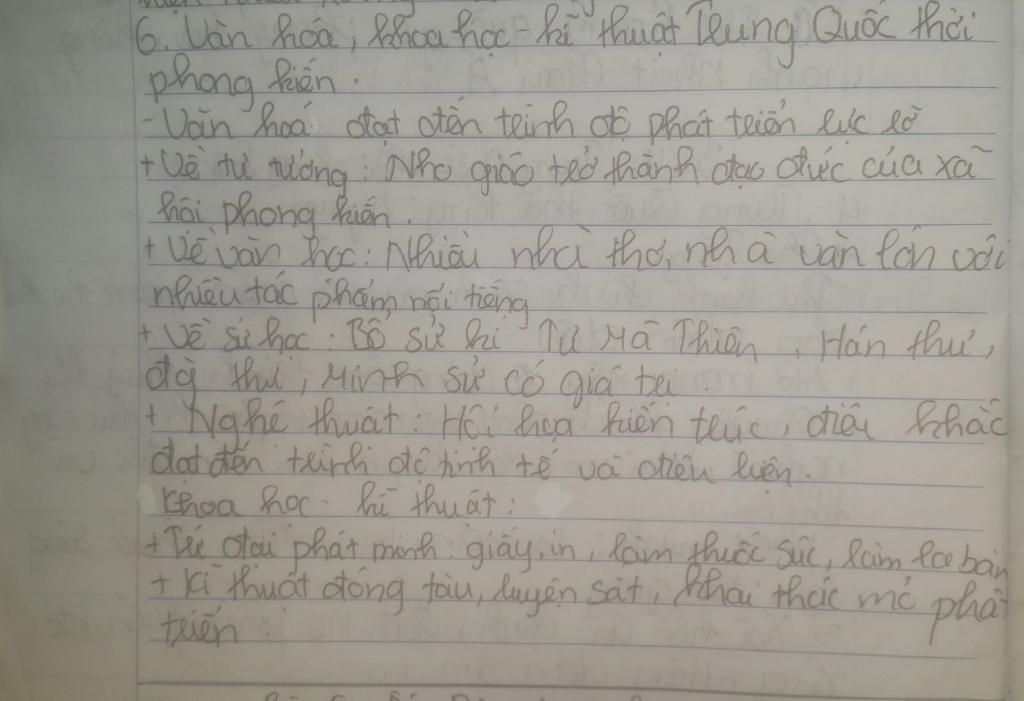 6. Văn hóa, khoa học - kĩ thuật Trung Quốc thời
phong kiến.
- Văn hoá đạt đến trình độ phát triển rực rỡ
+ Về tư tưởng: Nho giáo trở thành đạo đức của xã
hội phong kiến.
+ Về văn học: Nhiều nhà thơ, nhà văn lớn với
nhiều tác phẩm nổi tiếng
+ Về sử học: Bộ sử kí Tư Mã Thiên, Hán thư,
đg thư, Minh sử có giá trị.
+ Nghệ thuật: Hội họa kiến trúc, điêu khắc
đạt đến trình độ tinh tế và điêu luyện.
Khoa học - kĩ thuật:
+ Tứ đại phát minh: giấy, in, làm thuốc súc, làm la bàn
+ Kĩ thuật đóng tàu, luyện sắt, khai thác mỏ phát
triển.